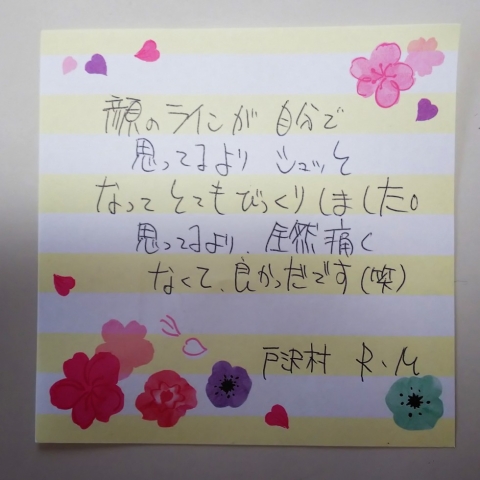 顔のラインが 自分で
思ってるより シュッと
なってとてもびっくりしました。
思ってるより、全然痛く
なくて、良かっだです(笑)
戸沢村 R.M